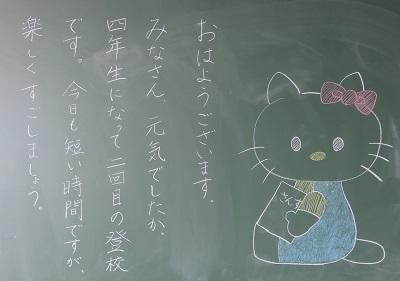 おはようございます。
みなさん、元気でしたか。
四年生になって二回目の登校
です。今日も短い時間ですが、
楽しくすごしましょう。
さんすう